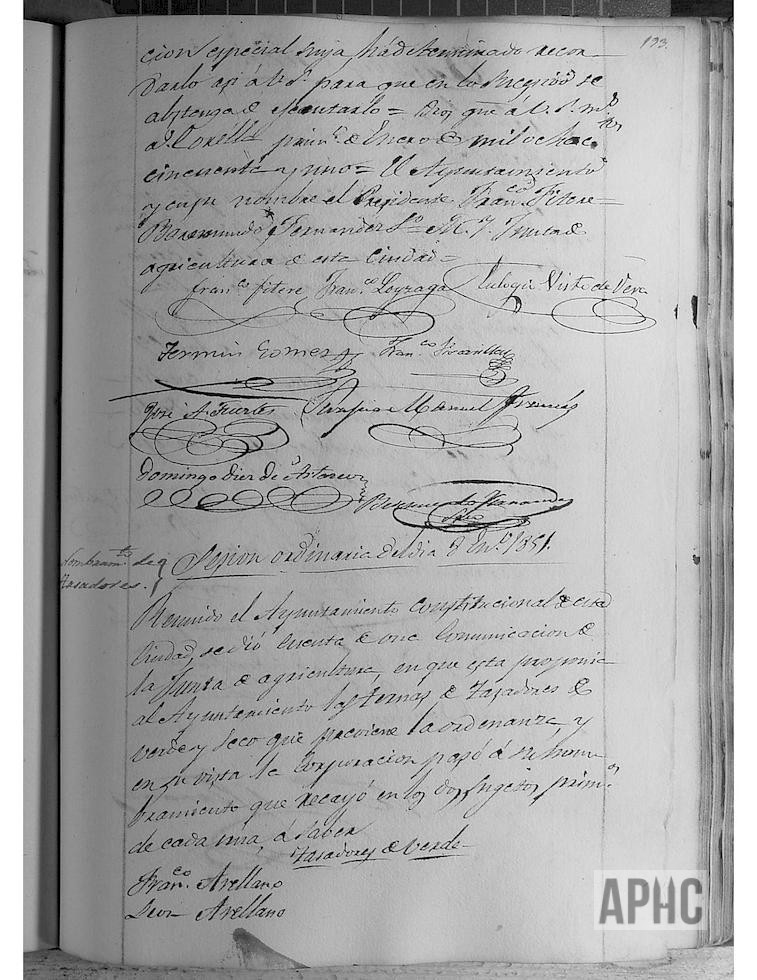 133.
cion especial suya, há determinado recor-
darlo asi á V. S. para que en lo sucesivo se
abstenga de ejecutarlo = Dios gue á V. S. m.s a.s
Corella prim.o de Enero de mil ochoc.tos
cincuenta y uno = El Ayuntamiento
y en su nombre el Presidente Fran.co Fitere =
Fernandez S.o = M. Y. Junta de
agricultura de esta Ciudad =
Fran.co Fitere Fran.co Loyzaga Eulogio Virto de Vera
Fermin Gomez Fran.co
José A. Fuertes Manuel
Domingo Diez de
Nombram.to de
tasadores.
Sesion ordinaria del dia 8 En.o 1851.
Reunido el Ayuntamiento constitucional de esta
Ciudad, se dió cuenta de una comunicacion de
la Junta de agricultura, en que esta proponia
al Ayuntamiento las ternas de tasadores de
verde y seco que previene la ordenanza, y
en su vista la Corporacion pasó á su nom-
bramiento que recayó en los dos sugetos prim.os
de cada una, á saber
Tasadores de verde
Fran.co Arellano
Leon Arellano
APHC